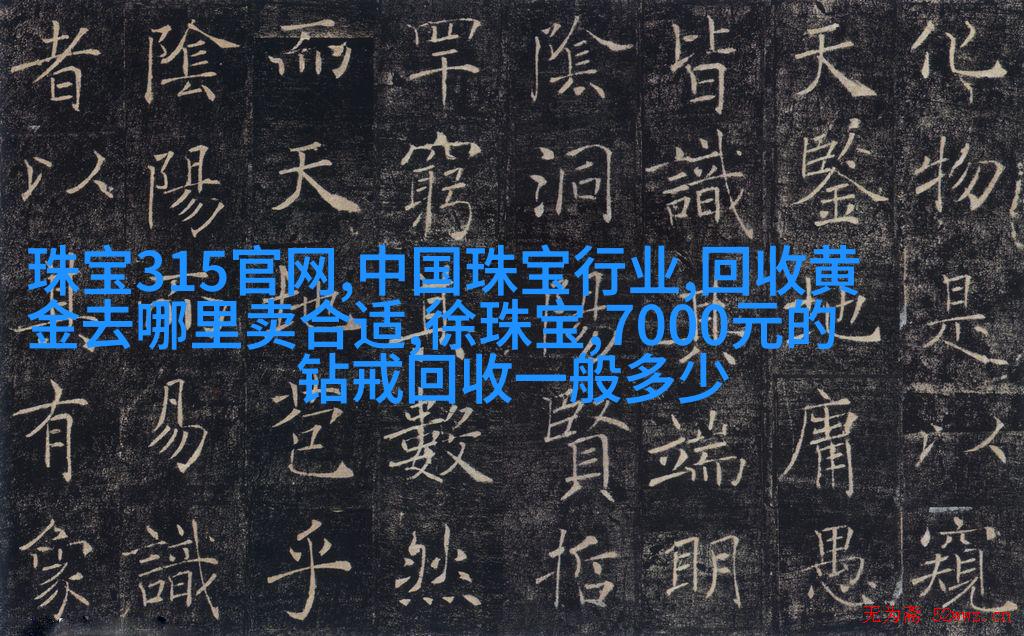 珠宝315官网,中国珠宝行业,回收黄
金去哪里卖合适,徐珠宝,7000元的
钻戒回收一般多少
化物是以窺
天鑒地庸愚
皆識端明
陰洞陽賢哲
罕窮數然
而天苞乎
陰陽易識
者以有象
无为斋 52wwz.cn